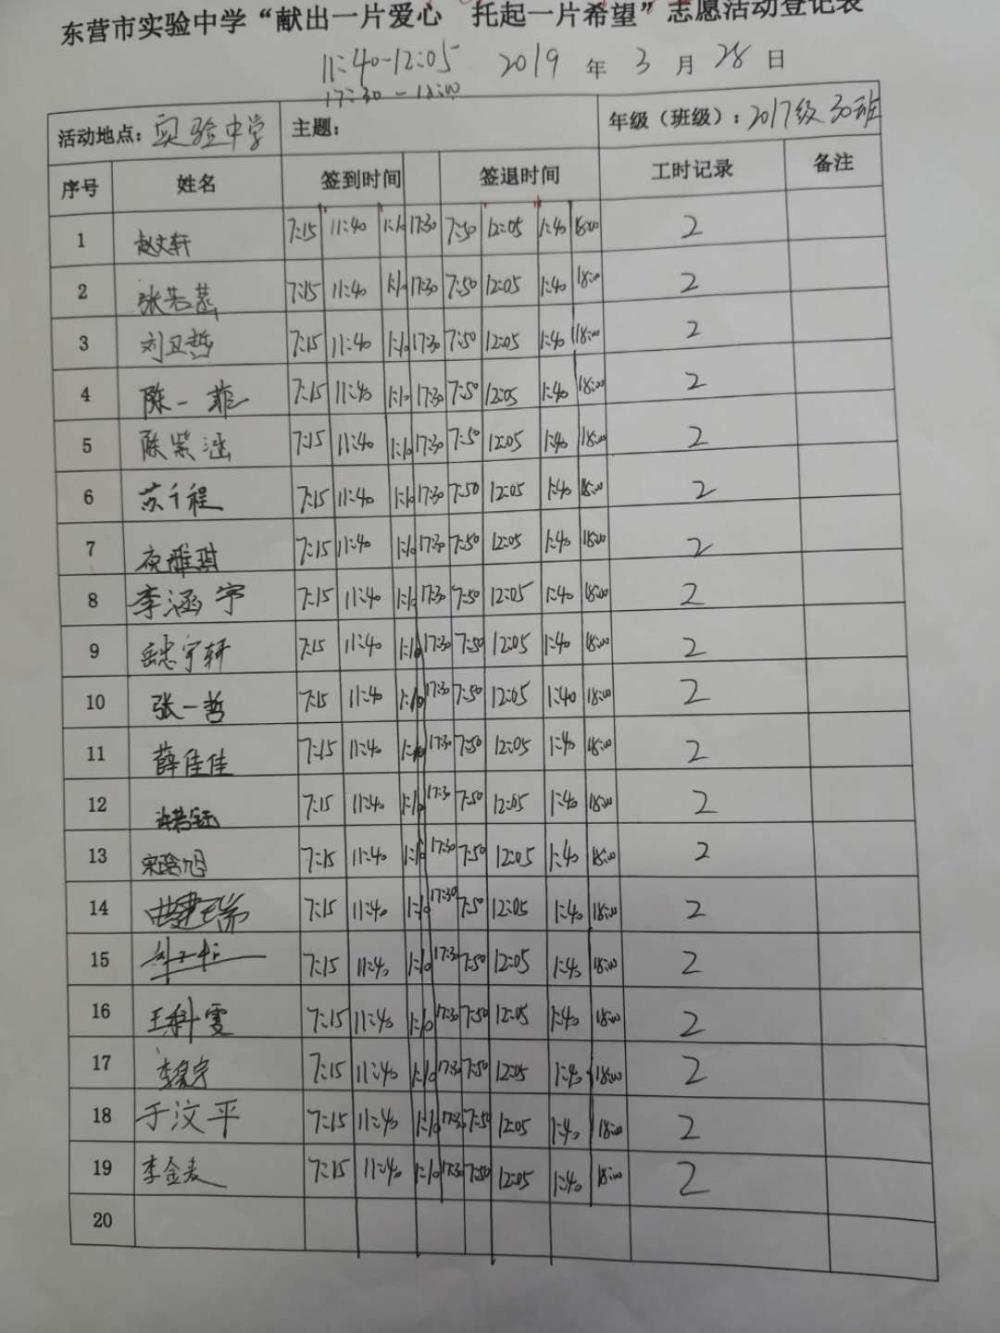 东营市实验中学“献出一片爱心 托起一片希望”志愿活动登记表
11:40-12:05 2019 年 3 月 28 日
17:30-18:00
活动地点：实验中学 主题： 年级（班级）：2017级30班
序号 姓名 签到时间 签退时间 工时记录 备注
1 赵文轩 7:15 11:40 1:10 17:30 7:50 12:05 1:40 18:00 2
2 张若菡 7:15 11:40 1:10 17:30 7:50 12:05 1:40 18:00 2
3 刘卫哲 7:15 11:40 1:10 17:30 7:50 12:05 1:40 18:00 2
4 陈一菲 7:15 11:40 1:10 17:30 7:50 12:05 1:40 18:00 2
5 陈紫涵 7:15 11:40 1:10 17:30 7:50 12:05 1:40 18:00 2
6 苏千程 7:15 11:40 1:10 17:30 7:50 12:05 1:40 18:00 2
7 7:15 11:40 1:10 17:30 7:50 12:05 1:40 18:00 2
8 李涵宇 7:15 11:40 1:10 17:30 7:50 12:05 1:40 18:00 2
9 7:15 11:40 1:10 17:30 7:50 12:05 1:40 18:00 2
10 张一哲 7:15 11:40 1:10 17:30 7:50 12:05 1:40 18:00 2
11 薛佳佳 7:15 11:40 1:10 17:30 7:50 12:05 1:40 18:00 2
12 许若钰 7:15 11:40 1:10 17:30 7:50 12:05 1:40 18:00 2
13 7:15 11:40 1:10 17:30 7:50 12:05 1:40 18:00 2
14 曲建瑞 7:15 11:40 1:10 17:30 7:50 12:05 1:40 18:00 2
15 7:15 11:40 1:10 17:30 7:50 12:05 1:40 18:00 2
16 王科雯 7:15 11:40 1:10 17:30 7:50 12:05 1:40 18:00 2
17 7:15 11:40 1:10 17:30 7:50 12:05 1:40 18:00 2
18 于汶平 7:15 11:40 1:10 17:30 7:50 12:05 1:40 18:00 2
19 李金麦 7:15 11:40 1:10 17:30 7:50 12:05 1:40 18:00 2
20